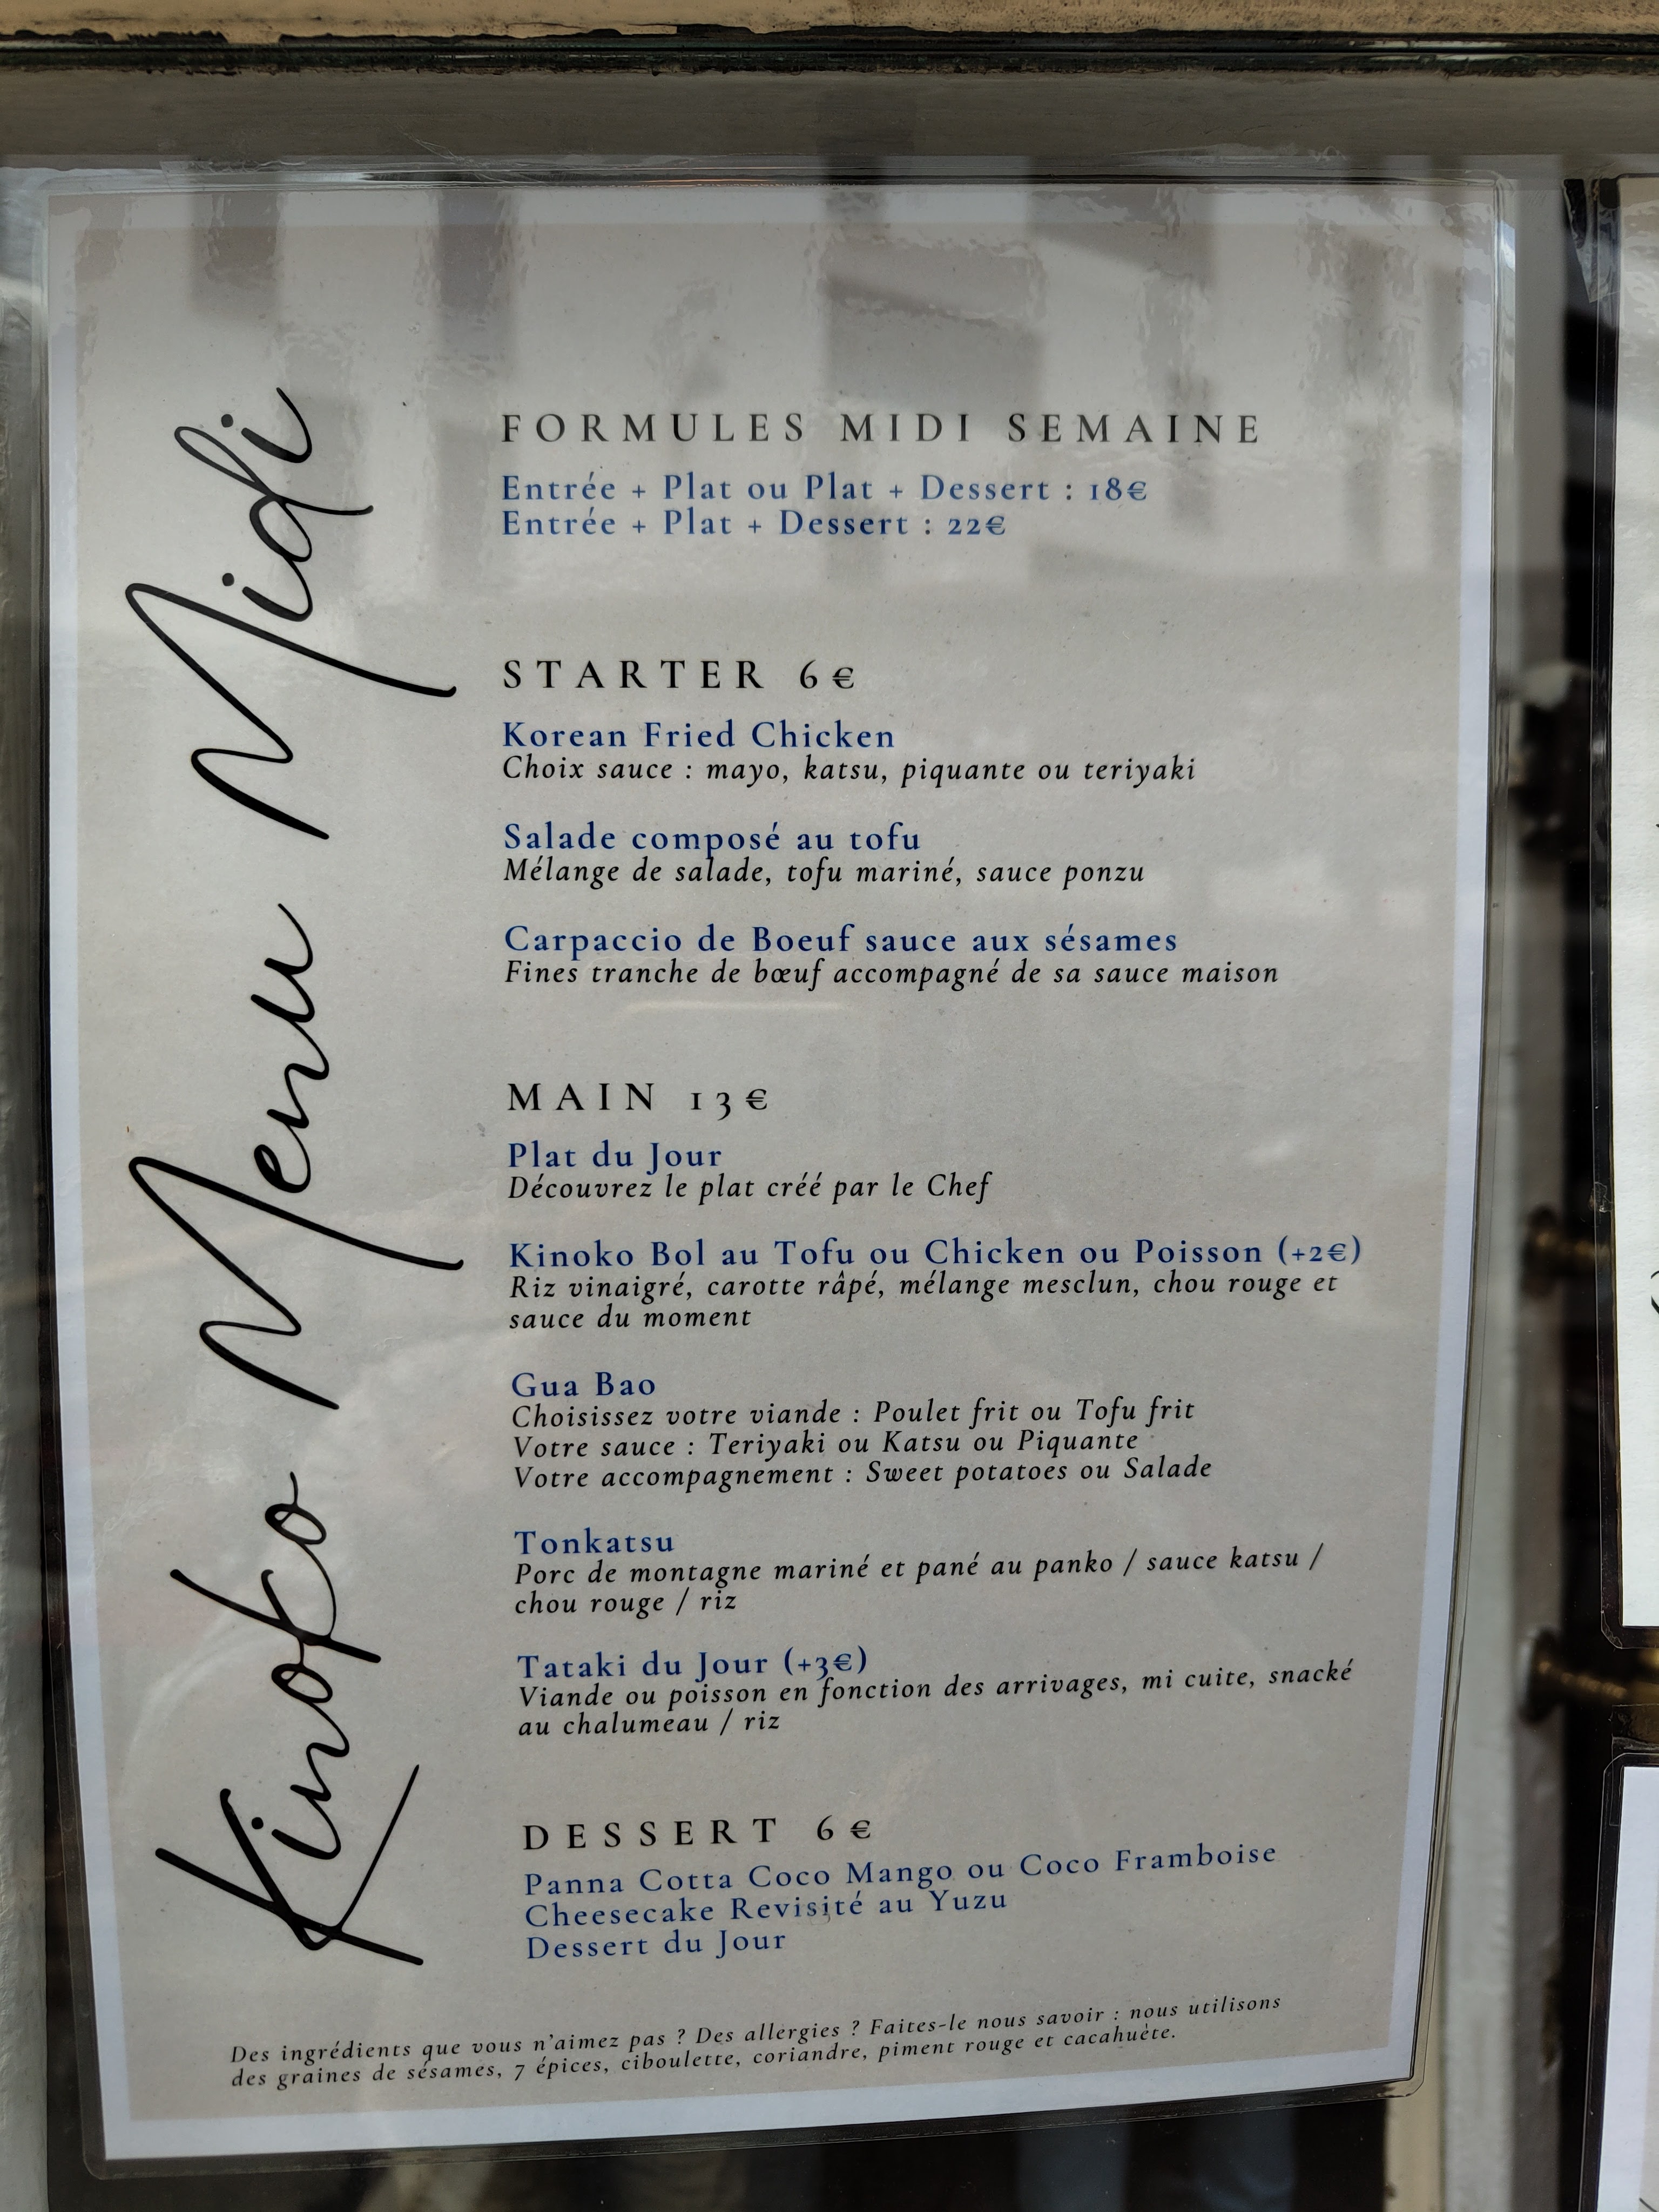 Kinoko Menu Midi
FORMULES MIDI SEMAINE
Entrée + Plat ou Plat + Dessert : 18€
Entrée + Plat + Dessert : 22€
STARTER 6€
Korean Fried Chicken
Choix sauce : mayo, katsu, piquante ou teriyaki
Salade composé au tofu
Mélange de salade, tofu mariné, sauce ponzu
Carpaccio de Boeuf sauce aux sésames
Fines tranche de bœuf accompagné de sa sauce maison
MAIN 13€
Plat du Jour
Découvrez le plat créé par le Chef
Kinoko Bol au Tofu ou Chicken ou Poisson (+2€)
Riz vinaigré, carotte râpé, mélange mesclun, chou rouge et
sauce du moment
Gua Bao
Choisissez votre viande : Poulet frit ou Tofu frit
Votre sauce : Teriyaki ou Katsu ou Piquante
Votre accompagnement : Sweet potatoes ou Salade
Tonkatsu
Porc de montagne mariné et pané au panko / sauce katsu /
chou rouge / riz
Tataki du Jour (+3€)
Viande ou poisson en fonction des arrivages, mi cuite, snacké
au chalumeau / riz
DESSERT 6€
Panna Cotta Coco Mango ou Coco Framboise
Cheesecake Revisité au Yuzu
Dessert du Jour
Des ingrédients que vous n'aimez pas ? Des allergies ? Faites-le nous savoir : nous utilisons
des graines de sésames, 7 épices, ciboulette, coriandre, piment rouge et cacahuète.